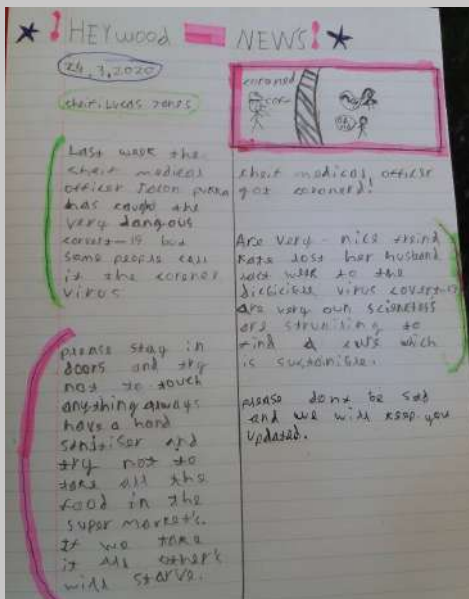 ! HEYWOOD = NEWS!
24.3.2020
cheif. Lucas Jones
Last week the
cheif medical
officer
has caught the
very dangous
covert-19 but
some people call
it the coroner
virus
please stay in
doors and try
not to touch
anything always
have a hand
sanitiser and
try not to
take all the
food in the
super market's.
If we take
it all other's
will starve.
coroned
cheif medical officer
got coronerd!
Are very nice freind
Kate lost her husband
last week to the
virus
Are very own scientests
are
to
find a cure wich
is
please dont be sad
and we will keep you
updated.